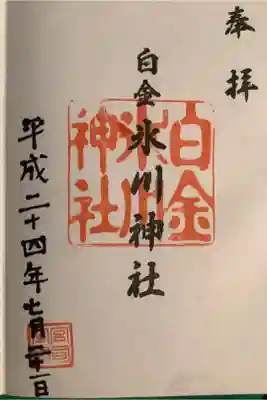 奉拝
白金氷川神社
白金氷川神社
平成二十四年七月二十一日